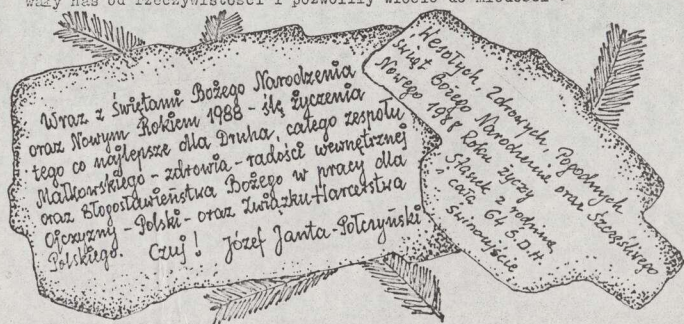 wały nas od rzeczywistości i pozwoliły wrócić do młodości".
Wraz z Świętami Bożego Narodzenia
oraz Nowym Rokiem 1988 - ślę życzenia
tego co najlepsze dla Druha, całego zespołu
Małkowskiego - zdrowia - radości wewnętrznej
oraz Błogosławieństwa Bożego w pracy dla
Ojczyzny - Polski - oraz Związku Harcerstwa
Polskiego. Czuj! Józef Janta-Połczyński
Wesołych, Zdrowych, Pogodnych
Świąt Bożego Narodzenia oraz Szczęśliwego
Nowego 1988 Roku życzy
Staszek z rodziną
i cała 64 Ś.D.H.
Świnoujście